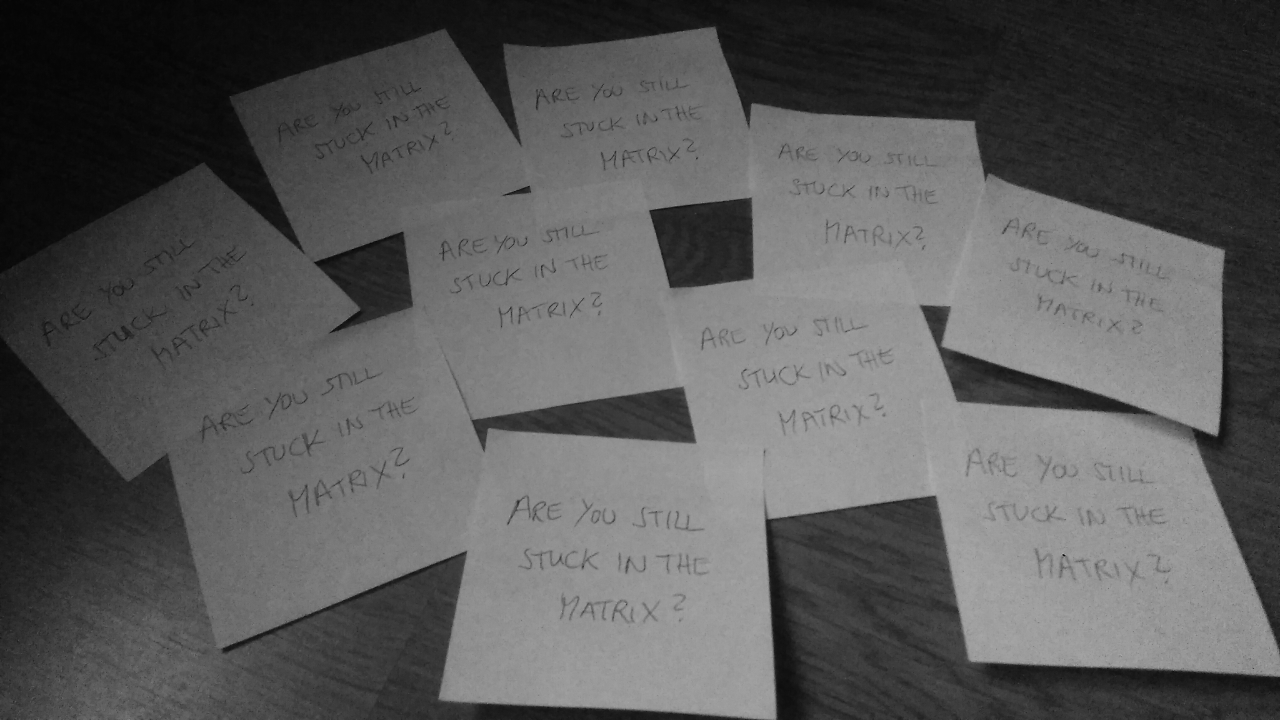 ARE YOU STILL
STUCK IN THE
MATRIX?
ARE YOU STILL
STUCK IN THE
MATRIX?
ARE YOU STILL
STUCK IN THE
MATRIX?
ARE YOU STILL
STUCK IN THE
MATRIX?
ARE YOU STILL
STUCK IN THE
MATRIX?
ARE YOU STILL
STUCK IN THE
MATRIX?
ARE YOU STILL
STUCK IN THE
MATRIX?
ARE YOU STILL
STUCK IN THE
MATRIX?
ARE YOU STILL
STUCK IN THE
MATRIX?
ARE YOU STILL
STUCK IN THE
MATRIX?